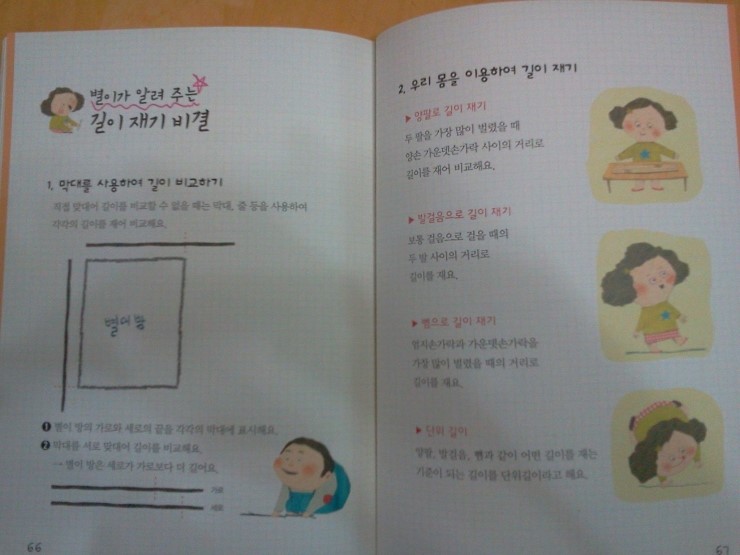 별이가 알려 주는
길이 재기 비결
1. 막대를 사용하여 길이 비교하기
직접 맞대어 길이를 비교할 수 없을 때는 막대, 줄 등을 사용하여
각각의 길이를 재어 비교해요.
별이 방
❶ 별이 방의 가로와 세로의 끝을 각각의 막대에 표시해요.
❷ 막대를 서로 맞대어 길이를 비교해요.
→ 별이 방은 세로가 가로보다 더 길어요.
가로
세로
66
2. 우리 몸을 이용하여 길이 재기
▶ 양팔로 길이 재기
두 팔을 가장 많이 벌렸을 때
양손 가운뎃손가락 사이의 거리로
길이를 재어 비교해요.
▶ 발걸음으로 길이 재기
보통 걸음으로 걸을 때의
두 발 사이의 거리로
길이를 재요.
▶ 뼘으로 길이 재기
엄지손가락과 가운뎃손가락을
가장 많이 벌렸을 때의 거리로
길이를 재요.
▶ 단위 길이
양팔, 발걸음, 뼘과 같이 어떤 길이를 재는
기준이 되는 길이를 단위길이라고 해요.
67